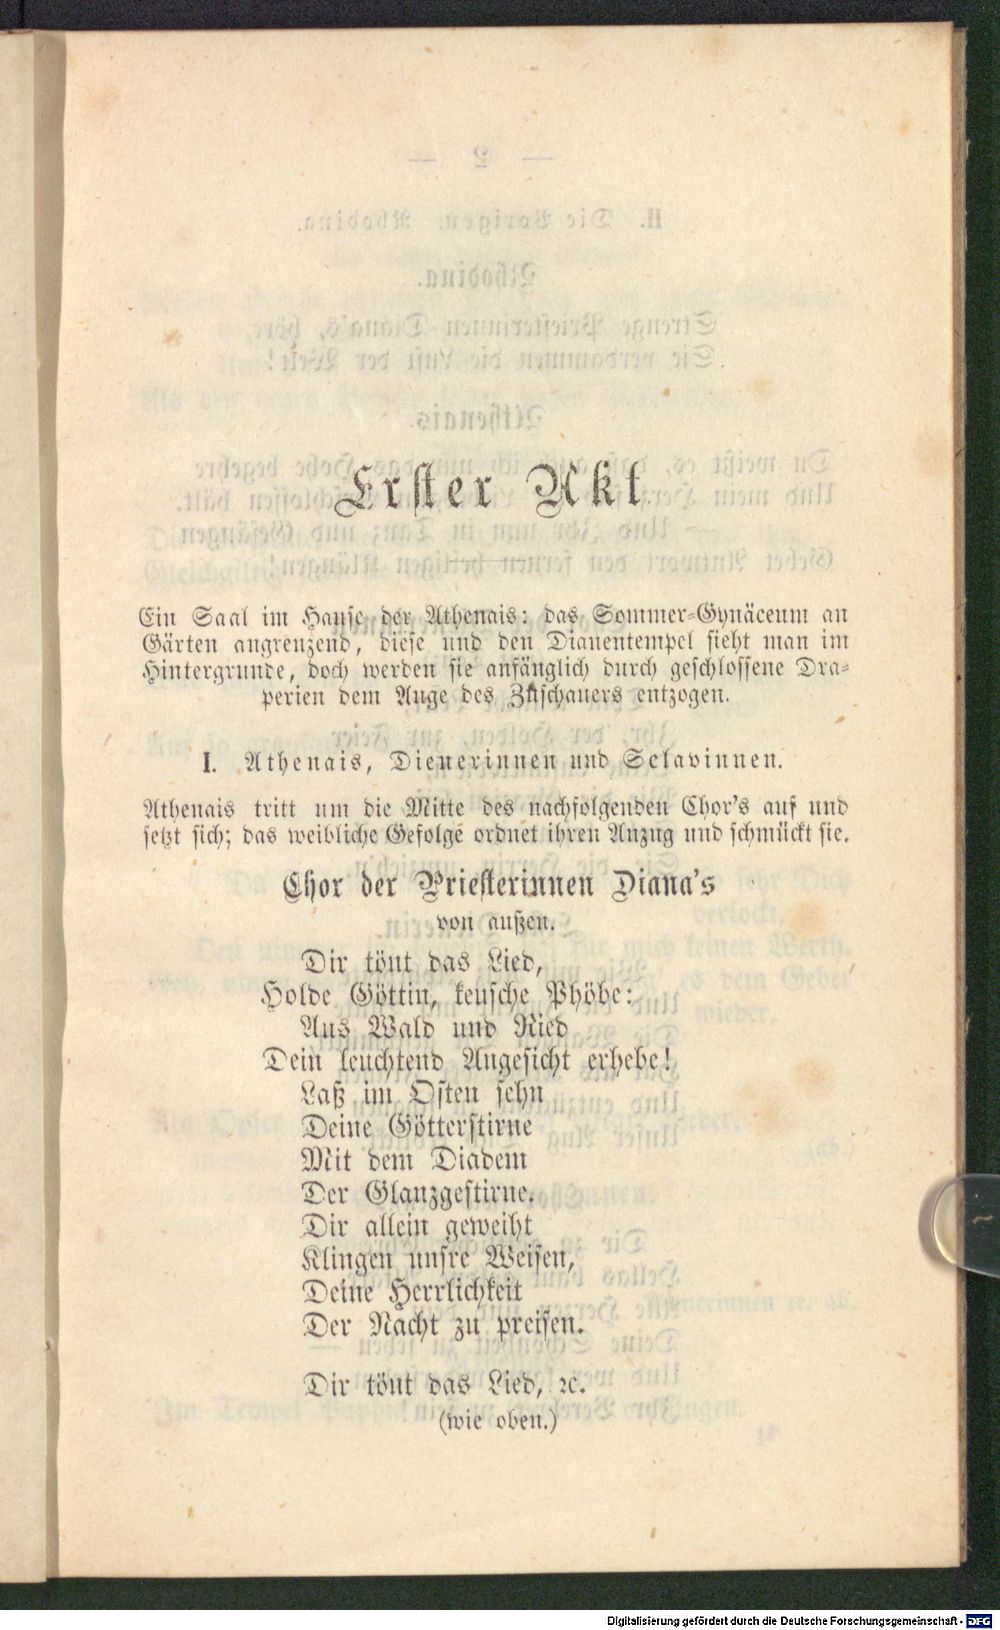 Erster Akt
Ein Saal im Hause der Athenais: das Sommer-Gynäceum an
Gärten angrenzend, diese und den Dianentempel sieht man im
Hintergrunde, doch werden sie anfänglich durch geschlossene Dra-
perien dem Auge des Zuschauers entzogen.
I. Athenais, Dienerinnen und Sclavinnen.
Athenais tritt um die Mitte des nachfolgenden Chor's auf und
setzt sich; das weibliche Gefolge ordnet ihren Anzug und schmückt sie.
Chor der Priesterinnen Diana's
von außen.
Dir tönt das Lied,
Holde Göttin, keusche Phöbe:
Aus Wald und Ried
Dein leuchtend Angesicht erhebe!
Laß im Osten sehn
Deine Götterstirne
Mit dem Diadem
Der Glanzgestirne.
Dir allein geweiht
Klingen unsre Weisen,
Deine Herrlichkeit
Der Nacht zu preisen.
Dir tönt das Lied, ꝛc.
(wie oben.)
Digitalisierung gefördert durch die Deutsche Forschungsgemeinschaft - DFG